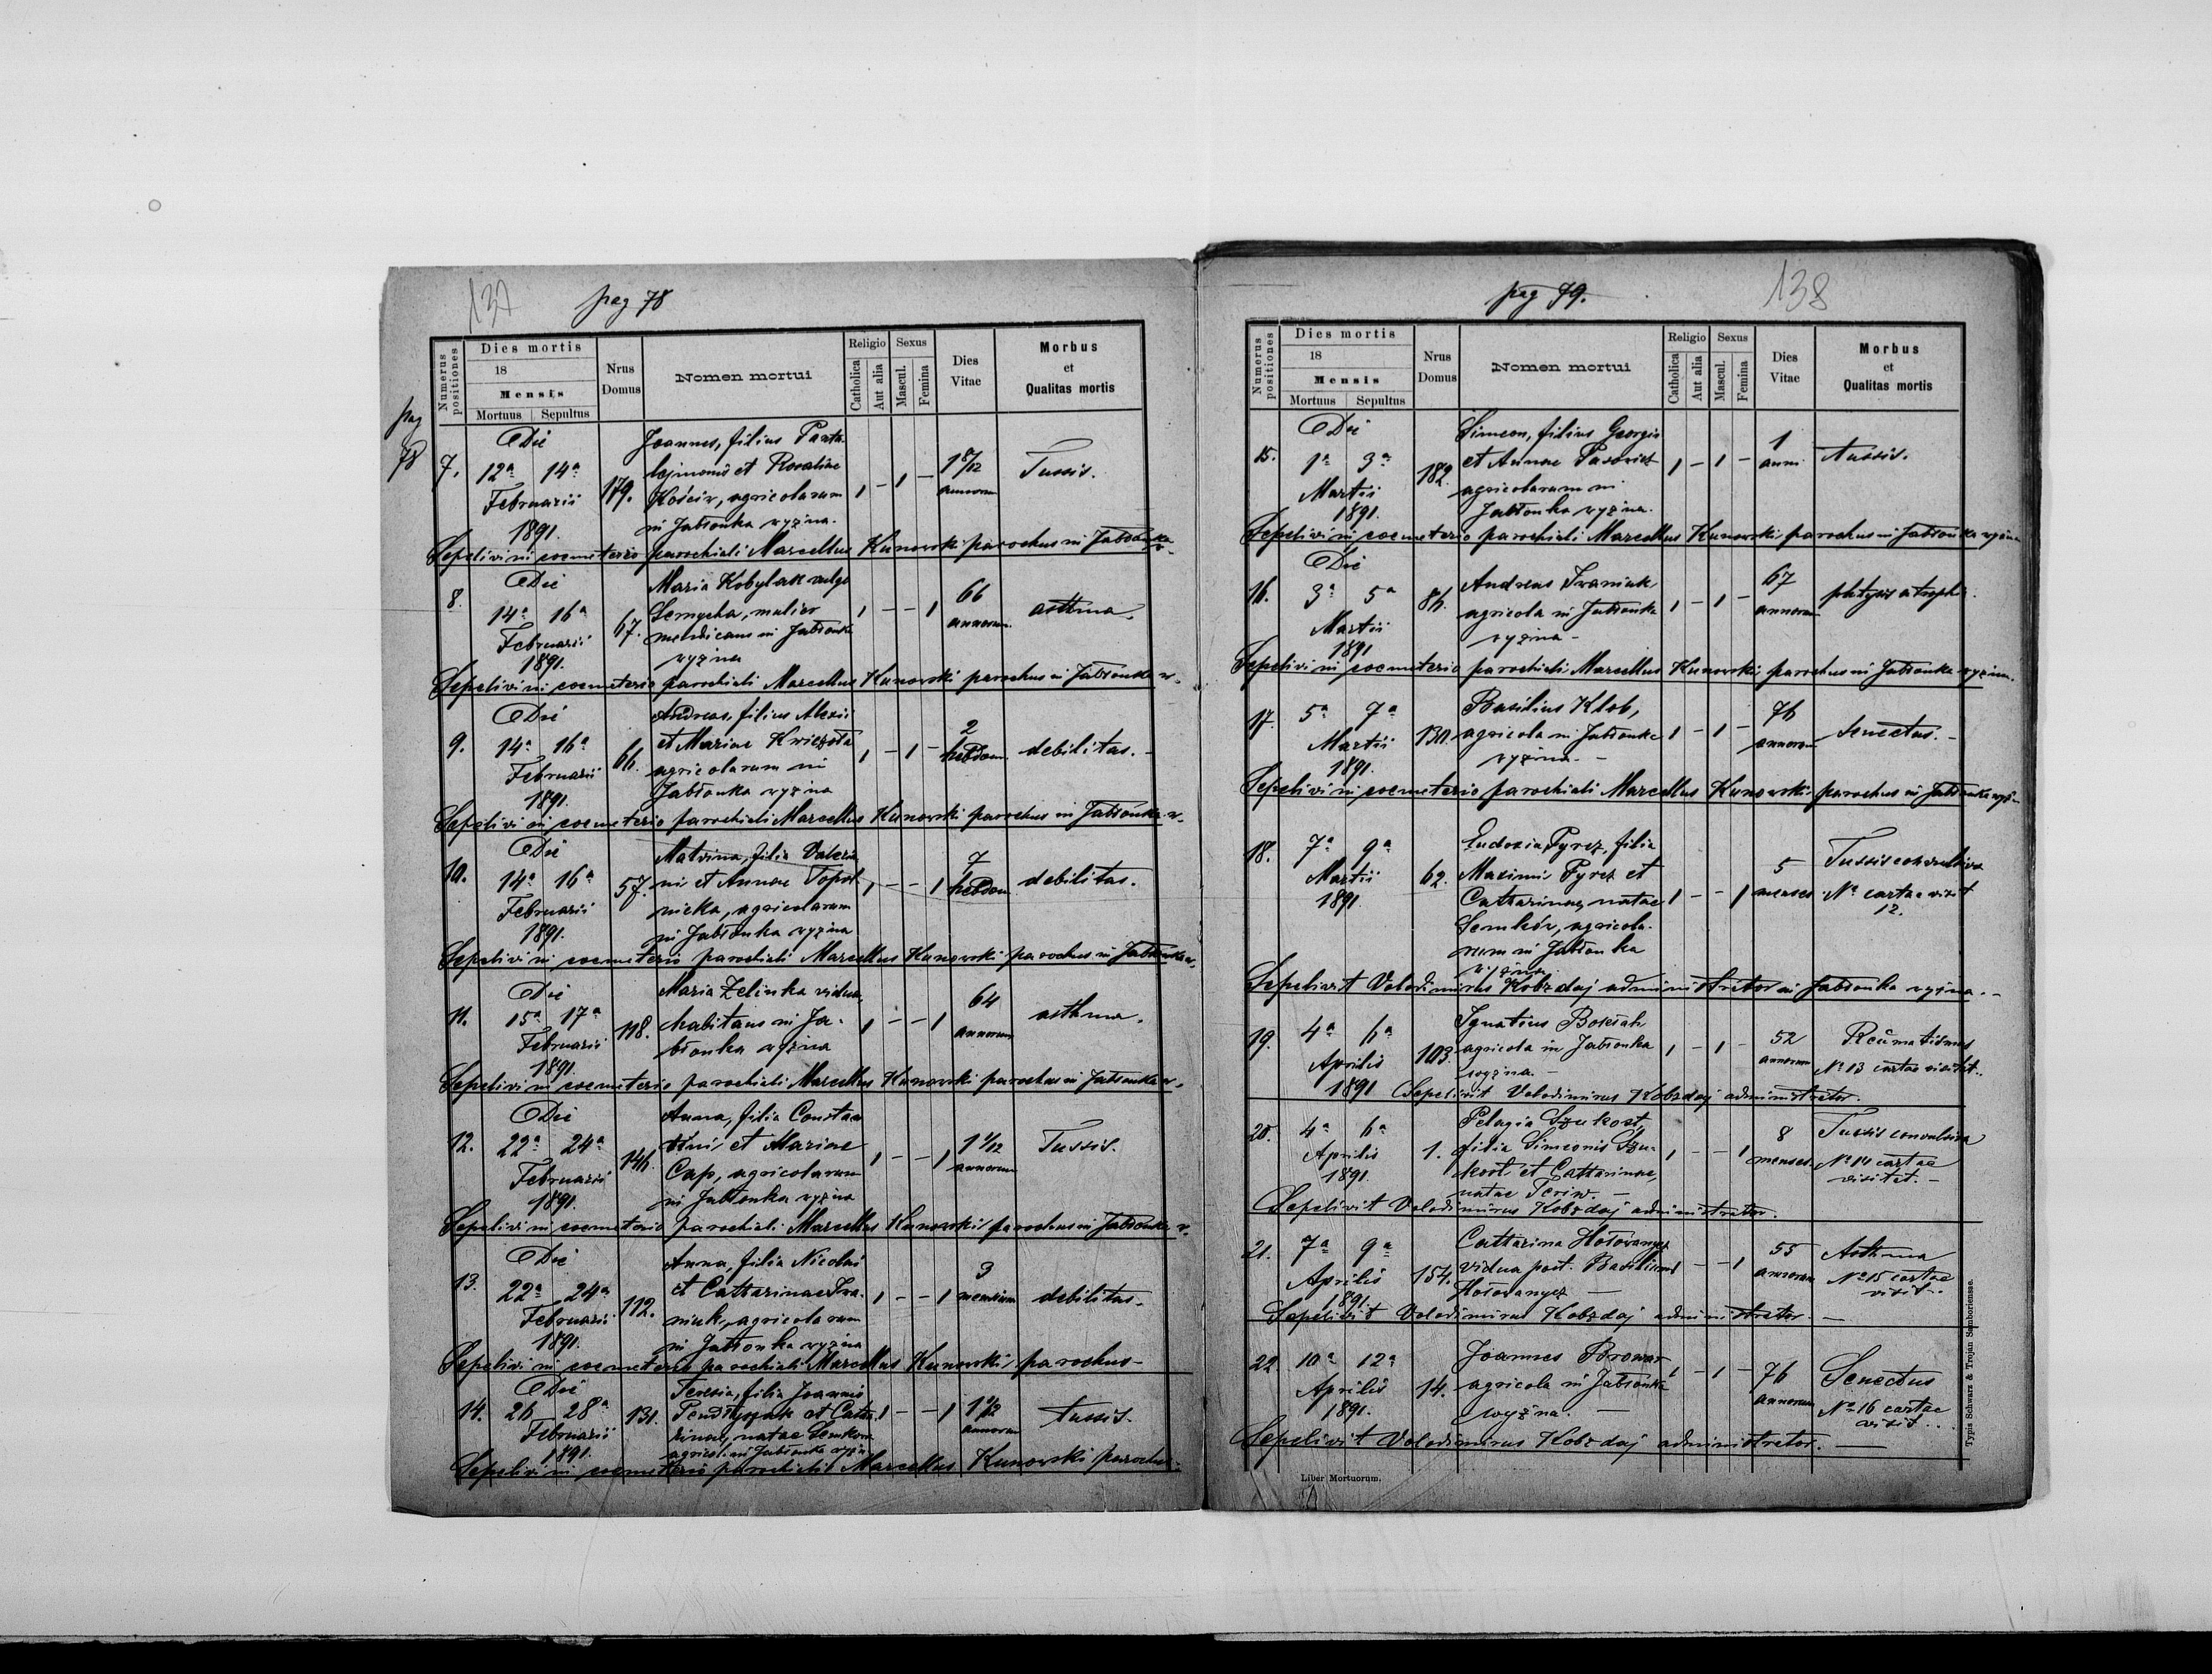 137
pag 78
Numerus positiones
Dies mortis
18
Mensis
Mortuus Sepultus
Nrus Domus
Nomen mortui
Religio
Catholica
Aut alia
Sexus
Mascul.
Femina
Dies Vitae
Morbus
et
Qualitas mortis
pag
78
Die
7. 12a 14a
Februarii
1891.
179.
Joannes, filius
et Rosaliae
agricolarum
in Jabłonka vyżna.
1 - 1 -
1 8/12
annorum
Tussis.
Sepelivi in coemeterio parochiali Marcellus Kunowski parochus in Jabłonka
Die
8. 14a 16a
Februarii
1891.
67.
Maria Kobylak vulgo
mulier
mendicans in Jabłonka
vyżna
1 - - 1
66
annorum.
asthma.
Sepelivi in coemeterio parochiali Marcellus Kunowski parochus in Jabłonka v.
Die
9. 14a 16a
Februarii
1891.
Andreas, filius Alexii
et Mariae
agricolarum in
Jabłonka vyżna
1 - 1 -
2
hebdom.
debilitas.-
Sepelivi in coemeterio parochiali Marcellus Kunowski parochus in Jabłonka v.
Die
10. 14a 16a
Februarii
1891.
57.
Malvina, filia
et Annae Topol
nicka, agricolarum
in Jabłonka vyżna
1 - - 1
7
hebdom.
debilitas.
Sepelivi in coemeterio parochiali Marcellus Kunowski parochus in Jabłonka v.
Die
11. 15a 17a
Februarii
1891.
118.
Maria Zelinka vidua,
habitans in Ja-
błonka vyżna
1 - - 1
64
annorum
asthma.
Sepelivi in coemeterio parochiali Marcellus Kunowski parochus in Jabłonka v.
Die
12. 22a 24a
Februarii
1891.
Anna, filia Constan
tini et Mariae
Cap, agricolarum
in Jabłonka vyżna
1 - - 1
1 1/12
annorum
Tussis.
Sepelivi in coemeterio parochiali Marcellus Kunowski parochus in Jabłonka v.
Die
13. 22a 24a
Februarii
1891.
112.
Anna, filia Nicolai
et Catharinae Iwa-
niuk, agricolarum
in Jabłonka vyżna
1 - - 1
3
mensium
debilitas.
Sepelivi in coemeterio parochiali Marcellus Kunowski parochus-
Die
14. 26 28a
Februarii
1891.
131.
Teresia, filia Joannis
et Catha
rinae, natae
in Jabłonka
1 - - 1
annorum
tussis.
Sepelivi in coemeterio parochiali Marcellus Kunowski parochus.
pag 79.
138
Numerus positiones
Dies mortis
18
Mensis
Mortuus Sepultus
Nrus Domus
Nomen mortui
Religio
Catholica
Aut alia
Sexus
Mascul.
Femina
Dies Vitae
Morbus
et
Qualitas mortis
Die
15. 1a 3a
Martii
1891.
182.
Simeon, filius Georgii
et Annae
agricolarum in
Jabłonka vyżna.
1 - 1 -
1
anni
tussis.
Sepelivi in coemeterio parochiali Marcellus Kunowski parochus in Jabłonka vyżna
Die
16. 3a 5a
Martii
1891
Andreas Iwaniuk
agricola in Jabłonka
vyżna -
1 - 1 -
67
annorum
Sepelivi in coemeterio parochiali Marcellus Kunowski parochus in Jabłonka vyżna.
17. 5a 7a
Martii
1891.
130.
Basilius Klob,
agricola in Jabłonka
vyżna. -
1 - 1 -
76
annorum
Senectus.-
Sepelivi in coemeterio parochiali Marcellus Kunowski parochus in Jabłonka
18. 7a 9a
Martii
1891.
62.
Eudoxia Pyrcz, filia
Maximi Pyrcz et
Catharinae, natae
Semków, agricola-
rum in Jabłonka
vyżna
1 - - 1
5
menses
Tussis convulsiva
No cartae visit
12.
Sepelivit Volodimirus Kobzdaj administrator in Jabłonka vyżna.-
19. 4a 6a
Aprilis
1891
103.
Ignatius
agricola in Jabłonka
wyżna. -
1 - 1 -
52
annorum
No 13 cartae visitat.
Sepelivit Volodimirus Kobzdaj administrator.
20. 4a 6a
Aprilis
1891.
1.
Pelagia
filia Simeonis
et Catharinae,
natae -
1 - - 1
8
menses
Tussis convulsiva
No 14 cartae
visitat. -
Sepelivit Volodimirus Kobzdaj administrator.
21. 7a 9a
Aprilis
1891.
154.
Catharina
vidua post. Basilium
1 - - 1
55
annorum
Asthma
No 15 cartae
visit.
Sepelivit Volodimirus Kobzdaj administrator. -
22. 10a 12a
Aprilis
1891.
14.
Joannes Browar
agricola in Jabłonka
wyżna. -
1 - 1 -
76
annorum
Senectus
No 16 cartae
visit.
Sepelivit Volodimirus Kobzdaj administrator. -
Liber Mortuorum.
Typis Schwarz & Trojan Samboriensae.